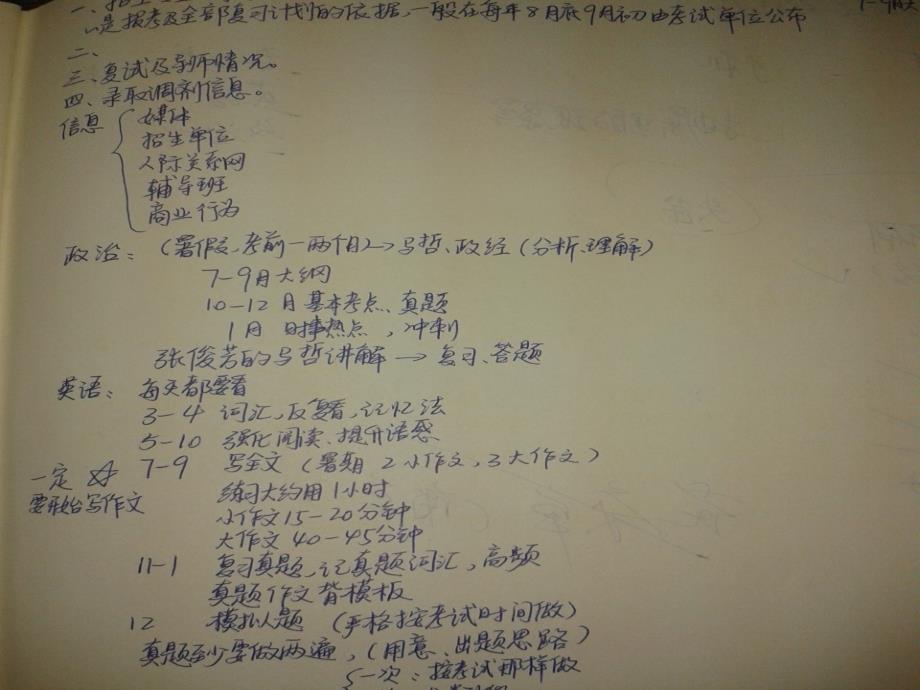 是报考及全部复习计划的依据,一般在每年8月底9月初由考试单位公布
二、
三、复试及导师情况。
四、录取调剂信息。
信息
媒体
招生单位
人际关系网
辅导班
商业行为
政治: (暑假、考前一两个月)→马哲、政经(分析、理解)
7-9月大纲
10-12月基本考点、真题
1月 时事热点,冲刺
张俊芳的马哲讲解→复习、答题
英语: 每天都要看
3-4 词汇,反复看,记忆法
5-10 强化阅读、提升语感
一定☆ 7-9 写全文(暑期 2小作文,3大作文)
要开始写作文 练习大约用1小时
小作文15-20分钟
大作文40-45分钟
11-1 复习真题,记真题词汇,高频
真题作文背模板
12 模拟题 (严格按考试时间做)
真题至少要做两遍,(用意、出题思路)
一次:按考试那样做